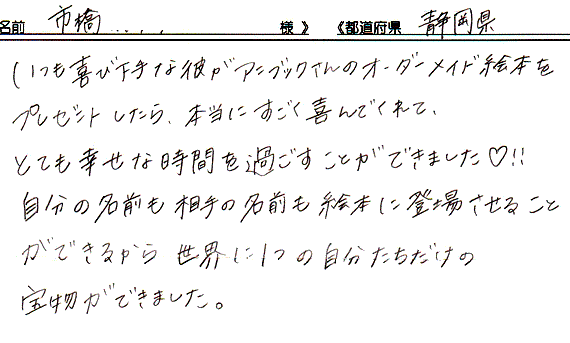 名前 市橋.... 様 》 《都道府県 静岡県
いつも喜び下手な彼がアンブックさんのオーダーメイド絵本を
プレゼントしたら、本当にすごく喜んでくれて、
とても幸せな時間を過ごすことができました♡!!
自分の名前も相手の名前も絵本に登場させること
ができるから世界に1つの自分たちだけの
宝物ができました。